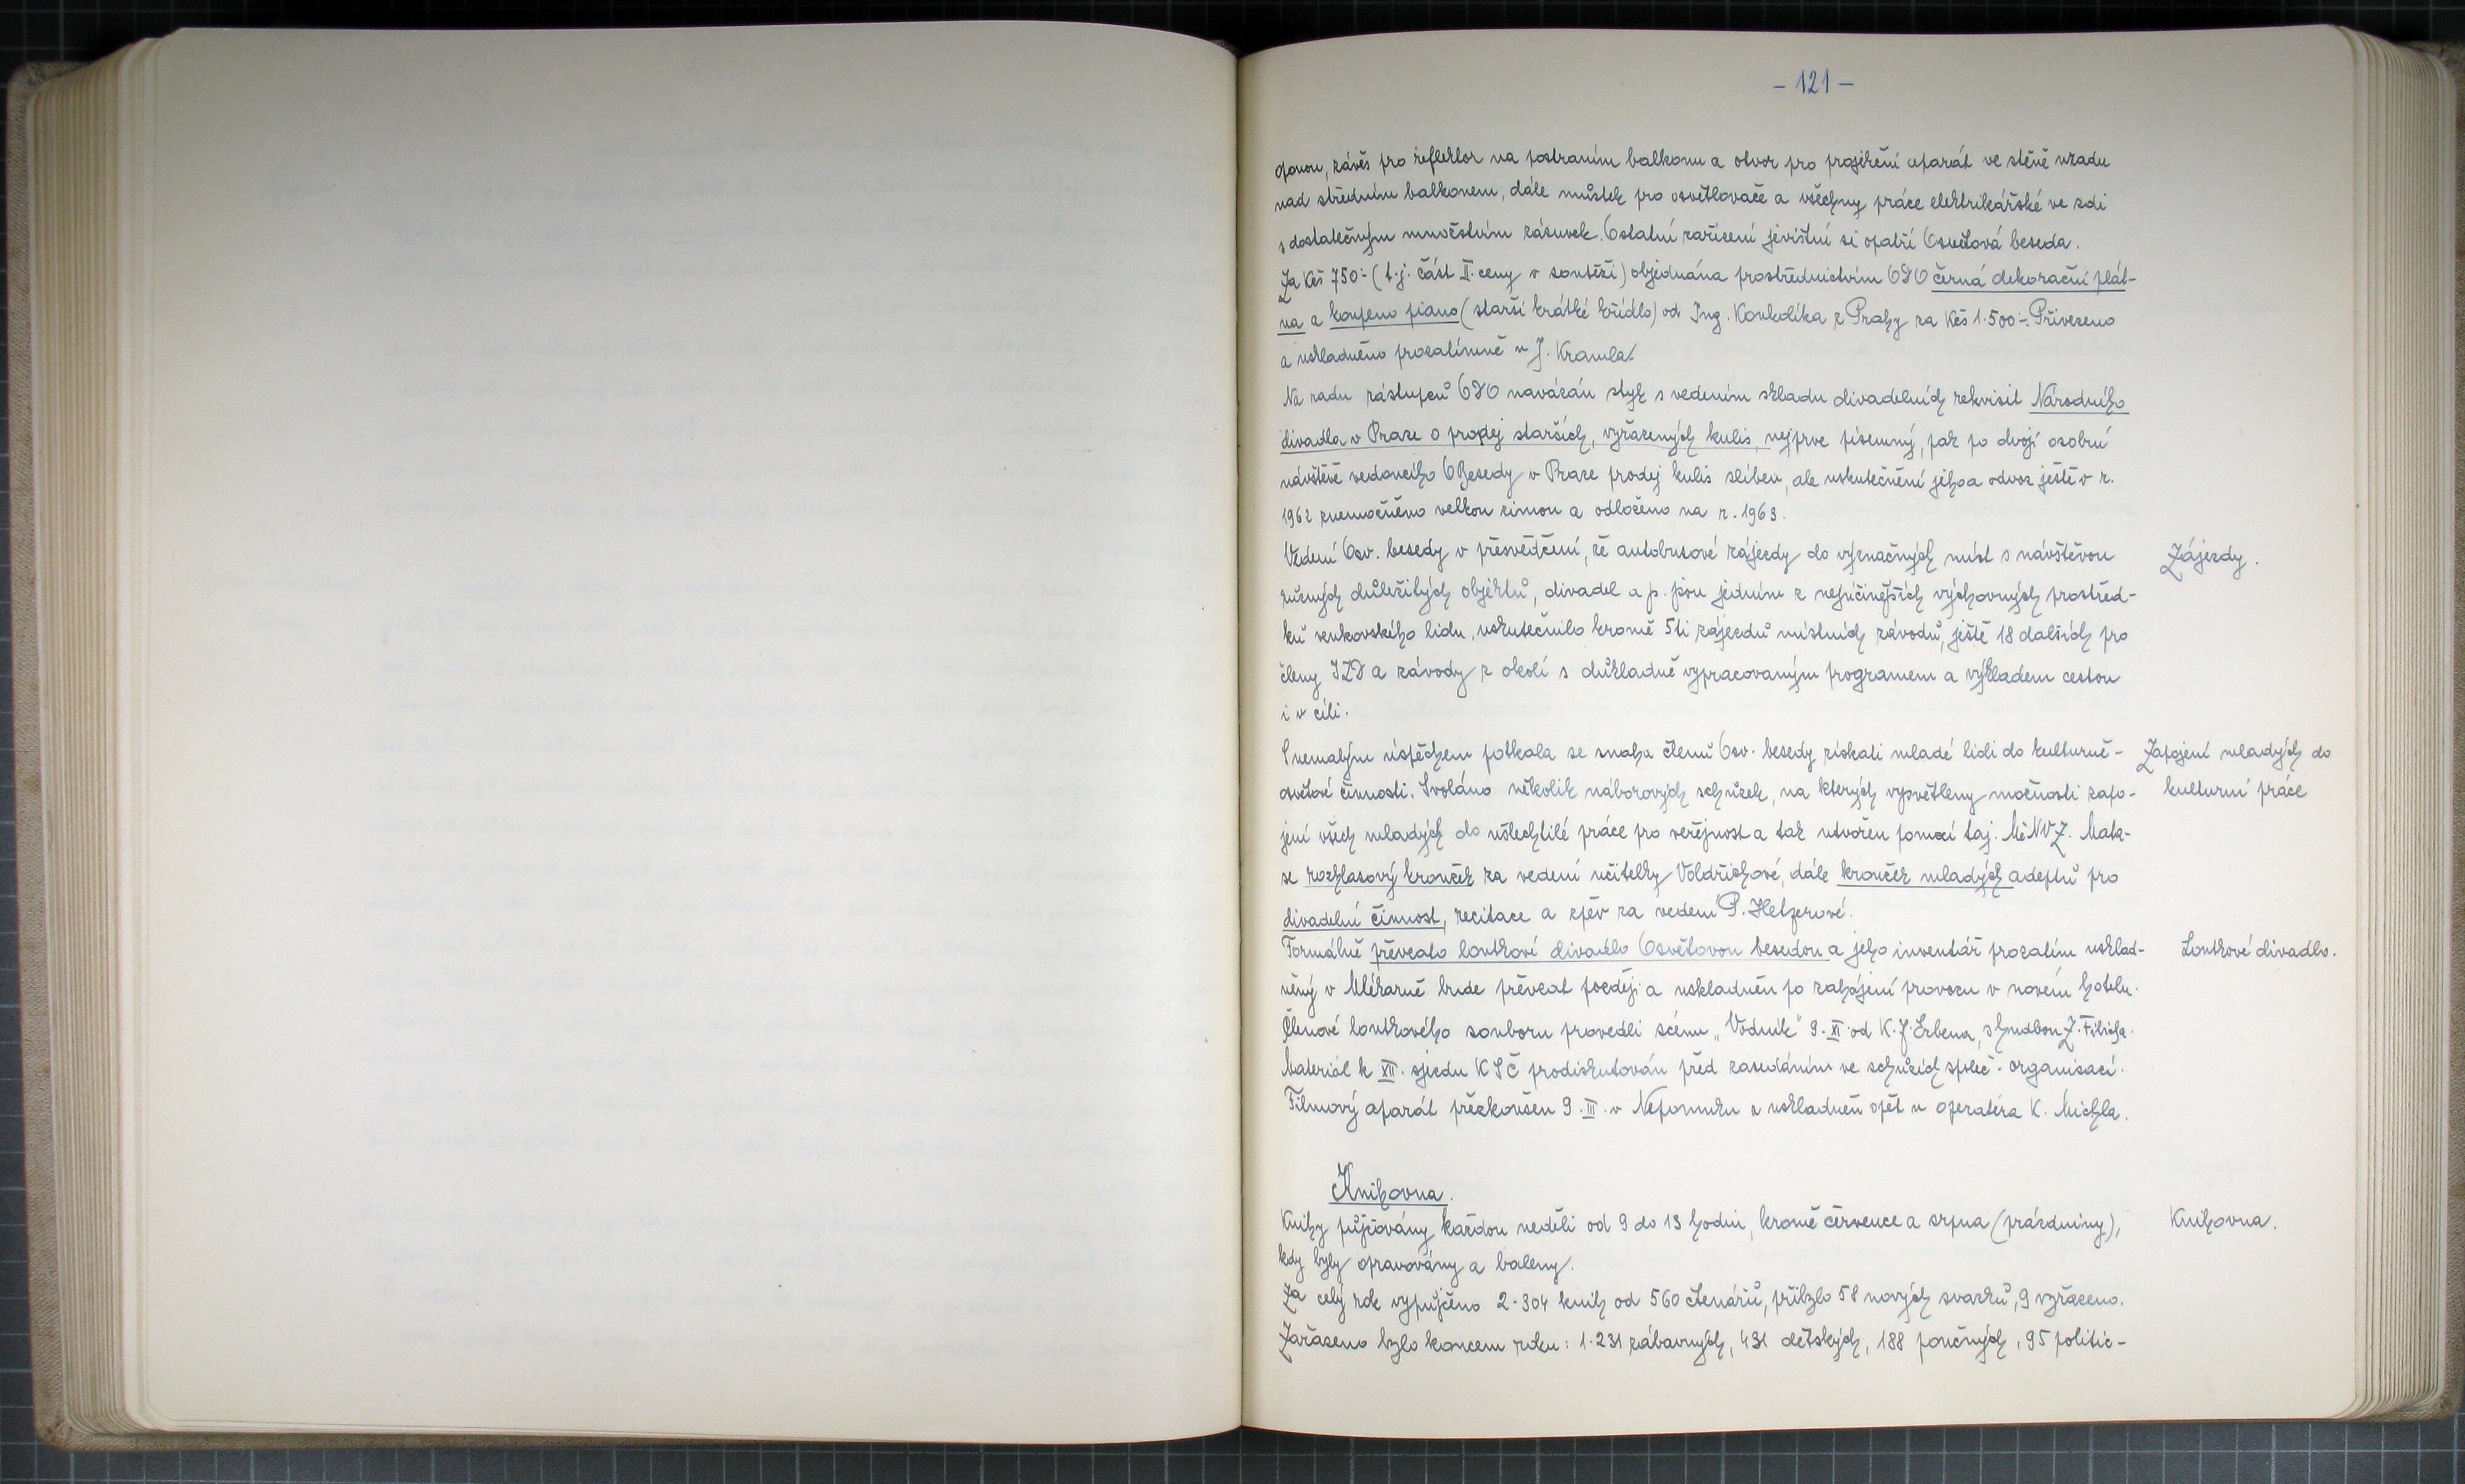 - 121 -
oponou, závěs pro reflektor na postranním balkonu a otvor pro projekční aparát ve stěně vzadu
nad středním balkonem, dále můstek pro osvětlovače a všechny práce elektrikářské ve zdi
s dostatečným množstvím zásuvek. Ostatní zařízení jevištní si opatří Osvětová beseda.
Za Kčs 750·- (t.j. část II. ceny v soutěži) objednána prostřednictvím ODO černá dekorační plát-
na a koupeno piano (starší krátké křídlo) od Ing. Koukolíka z Prahy za Kčs 1·500·-. Přivezeno
a uskladněno prozatímně u J. Kramla.
Na radu zástupců ODO navázán styk s vedením skladu divadelních rekvisit Národního
divadla v Praze o prodej starších, vyřazených kulis, nejprve písemný, pak po dvojí osobní
návštěvě vedoucího OBesedy v Praze prodej kulis slíben, ale uskutečnění jeho a odvoz ještě v r.
1962 znemožněno velkou zimou a odloženo na r. 1963.
Vedení Osv. besedy v přesvědčení, že autobusové zájezdy do význačných míst s návštěvou
různých důležitých objektů, divadel a p. jsou jedním z nejúčinějších výchovných prostřed-
ků venkovského lidu, uskutečnilo kromě 5ti zájezdů místních závodů, ještě 18 dalších pro
členy JZD a závody z okolí s důkladně vypracovaným programem a výkladem cestou
i v cíli.
Zájezdy.
S nemalým úspěchem potkala se snaha členů Osv. besedy získati mladé lidi do kulturně-
osvětové činnosti. Svoláno několik náborových schůzek, na kterých vysvětleny možnosti zapo-
jení všech mladých do ušlechtilé práce pro veřejnost a tak utvořen pomocí taj. MěNV Z. Mata-
se rozhlasový kroužek za vedení učitelky Voldřichové, dále kroužek mladých adeptů pro
divadelní činnost, recitace a zpěv za vedení P. Helzerové.
Zapojení mladých do
kulturní práce
Formálně převzato loutkové divadlo Osvětovou besedou a jeho inventář prozatím usklad-
něný v Mlékárně bude převzat později a uskladněn po zahájení provozu v novém hotelu.
Členové loutkového souboru provedli scénu „Vodník" 9. XI. od K. J. Erbena, s hudbou Z. Fibicha.
Materiál k XII. sjezdu KSČ prodiskutován před zasedáním ve schůzích společ. organisací.
Filmový aparát přezkoušen 9. III. v Nepomuku a uskladněn opět u operatéra K. Michla.
Loutkové divadlo.
Knihovna.
Knihy půjčovány každou neděli od 9 do 13 hodin, kromě července a srpna (prázdniny),
kdy byly opravovány a baleny.
Za celý rok vypůjčeno 2·304 knih od 560 čtenářů, přibylo 58 nových svazků, 9 vyřazeno.
Zařazeno bylo koncem roku: 1·231 zábavných, 431 dětských, 188 poučných, 95 politic-
Knihovna.